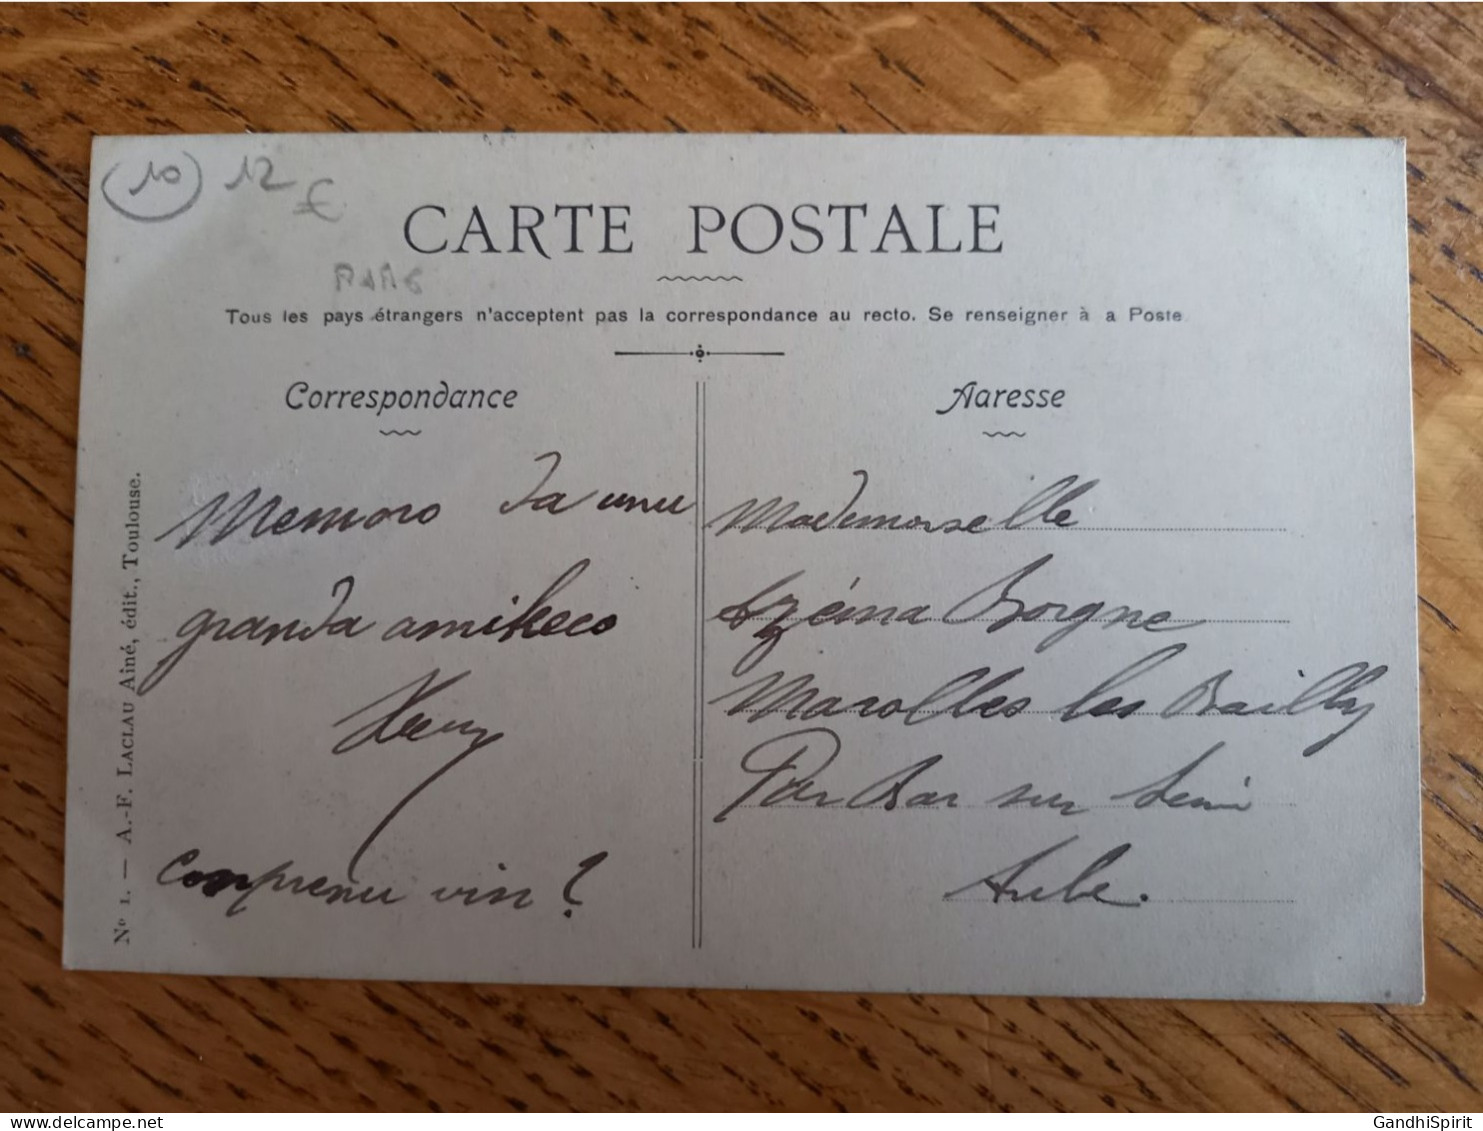 10 12 €
CARTE POSTALE
RARE
Tous les pays étrangers n'acceptent pas la correspondance au recto. Se renseigner à a Poste
Correspondance
Memoro da unu
granda amikeco
Henry
Comprenu vin ?
Adresse
Mademoiselle
Azéina Borgne
Marolles les Bailly
Par Bar sur Seine
Aube.
Nº 1. — A.-F. LACLAU Ainé, édit., Toulouse.
GandhiSpirit